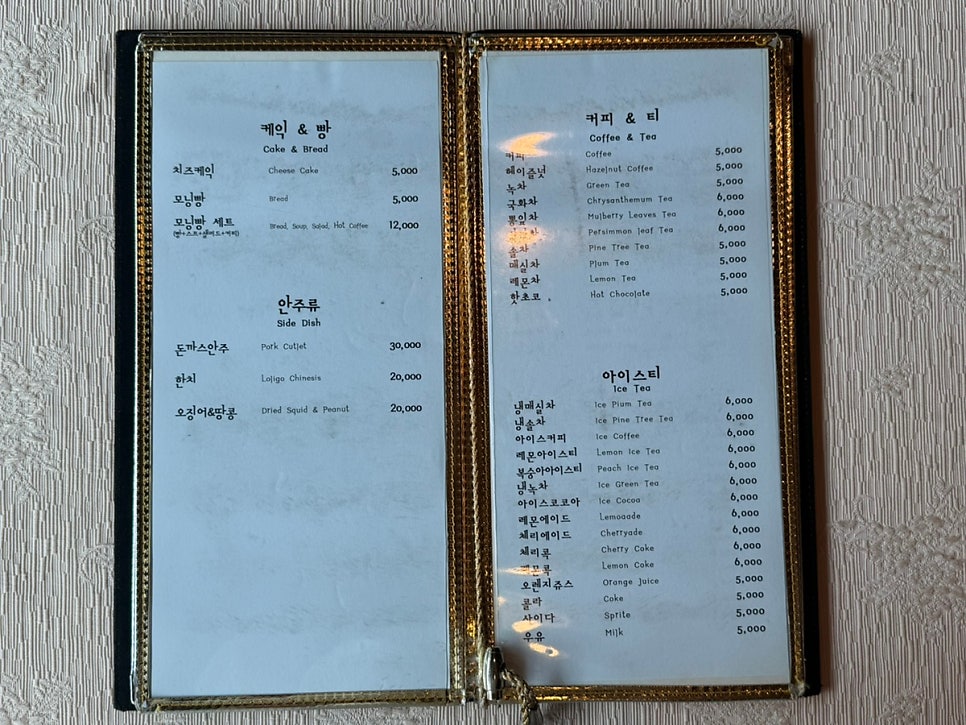 케익 & 빵
Cake & Bread
치즈케익 Cheese Cake 5,000
모닝빵 Bread 5,000
모닝빵 세트 Bread, Soup, Salad, Hot Coffee 12,000
(빵+스프+샐러드+커피)
안주류
Side Dish
돈까스안주 Pork Cutlet 30,000
한치 Loligo Chinesis 20,000
오징어&땅콩 Dried Squid & Peanut 20,000
커피 & 티
Coffee & Tea
커피 Coffee 5,000
헤이즐넛 Hazelnut Coffee 5,000
녹차 Green Tea 5,000
국화차 Chrysanthemum Tea 6,000
뽕잎차 Mulberry Leaves Tea 6,000
Persimmon leaf Tea 6,000
솔차 Pine Tree Tea 5,000
매실차 Plum Tea 5,000
레몬차 Lemon Tea 5,000
핫초코 Hot Chocolate 5,000
아이스티
Ice Tea
냉매실차 Ice Plum Tea 6,000
냉솔차 Ice Pine Tree Tea 6,000
아이스커피 Ice Coffee 6,000
레몬아이스티 Lemon Ice Tea 6,000
복숭아아이스티 Peach Ice Tea 6,000
냉녹차 Ice Green Tea 6,000
아이스코코아 Ice Cocoa 6,000
레몬에이드 Lemoade 6,000
체리에이드 Cherryade 6,000
체리콕 Cherry Coke 6,000
레몬콕 Lemon Coke 6,000
오렌지쥬스 Orange Juice 5,000
콜라 Coke 5,000
사이다 Sprite 5,000
우유 Milk 5,000